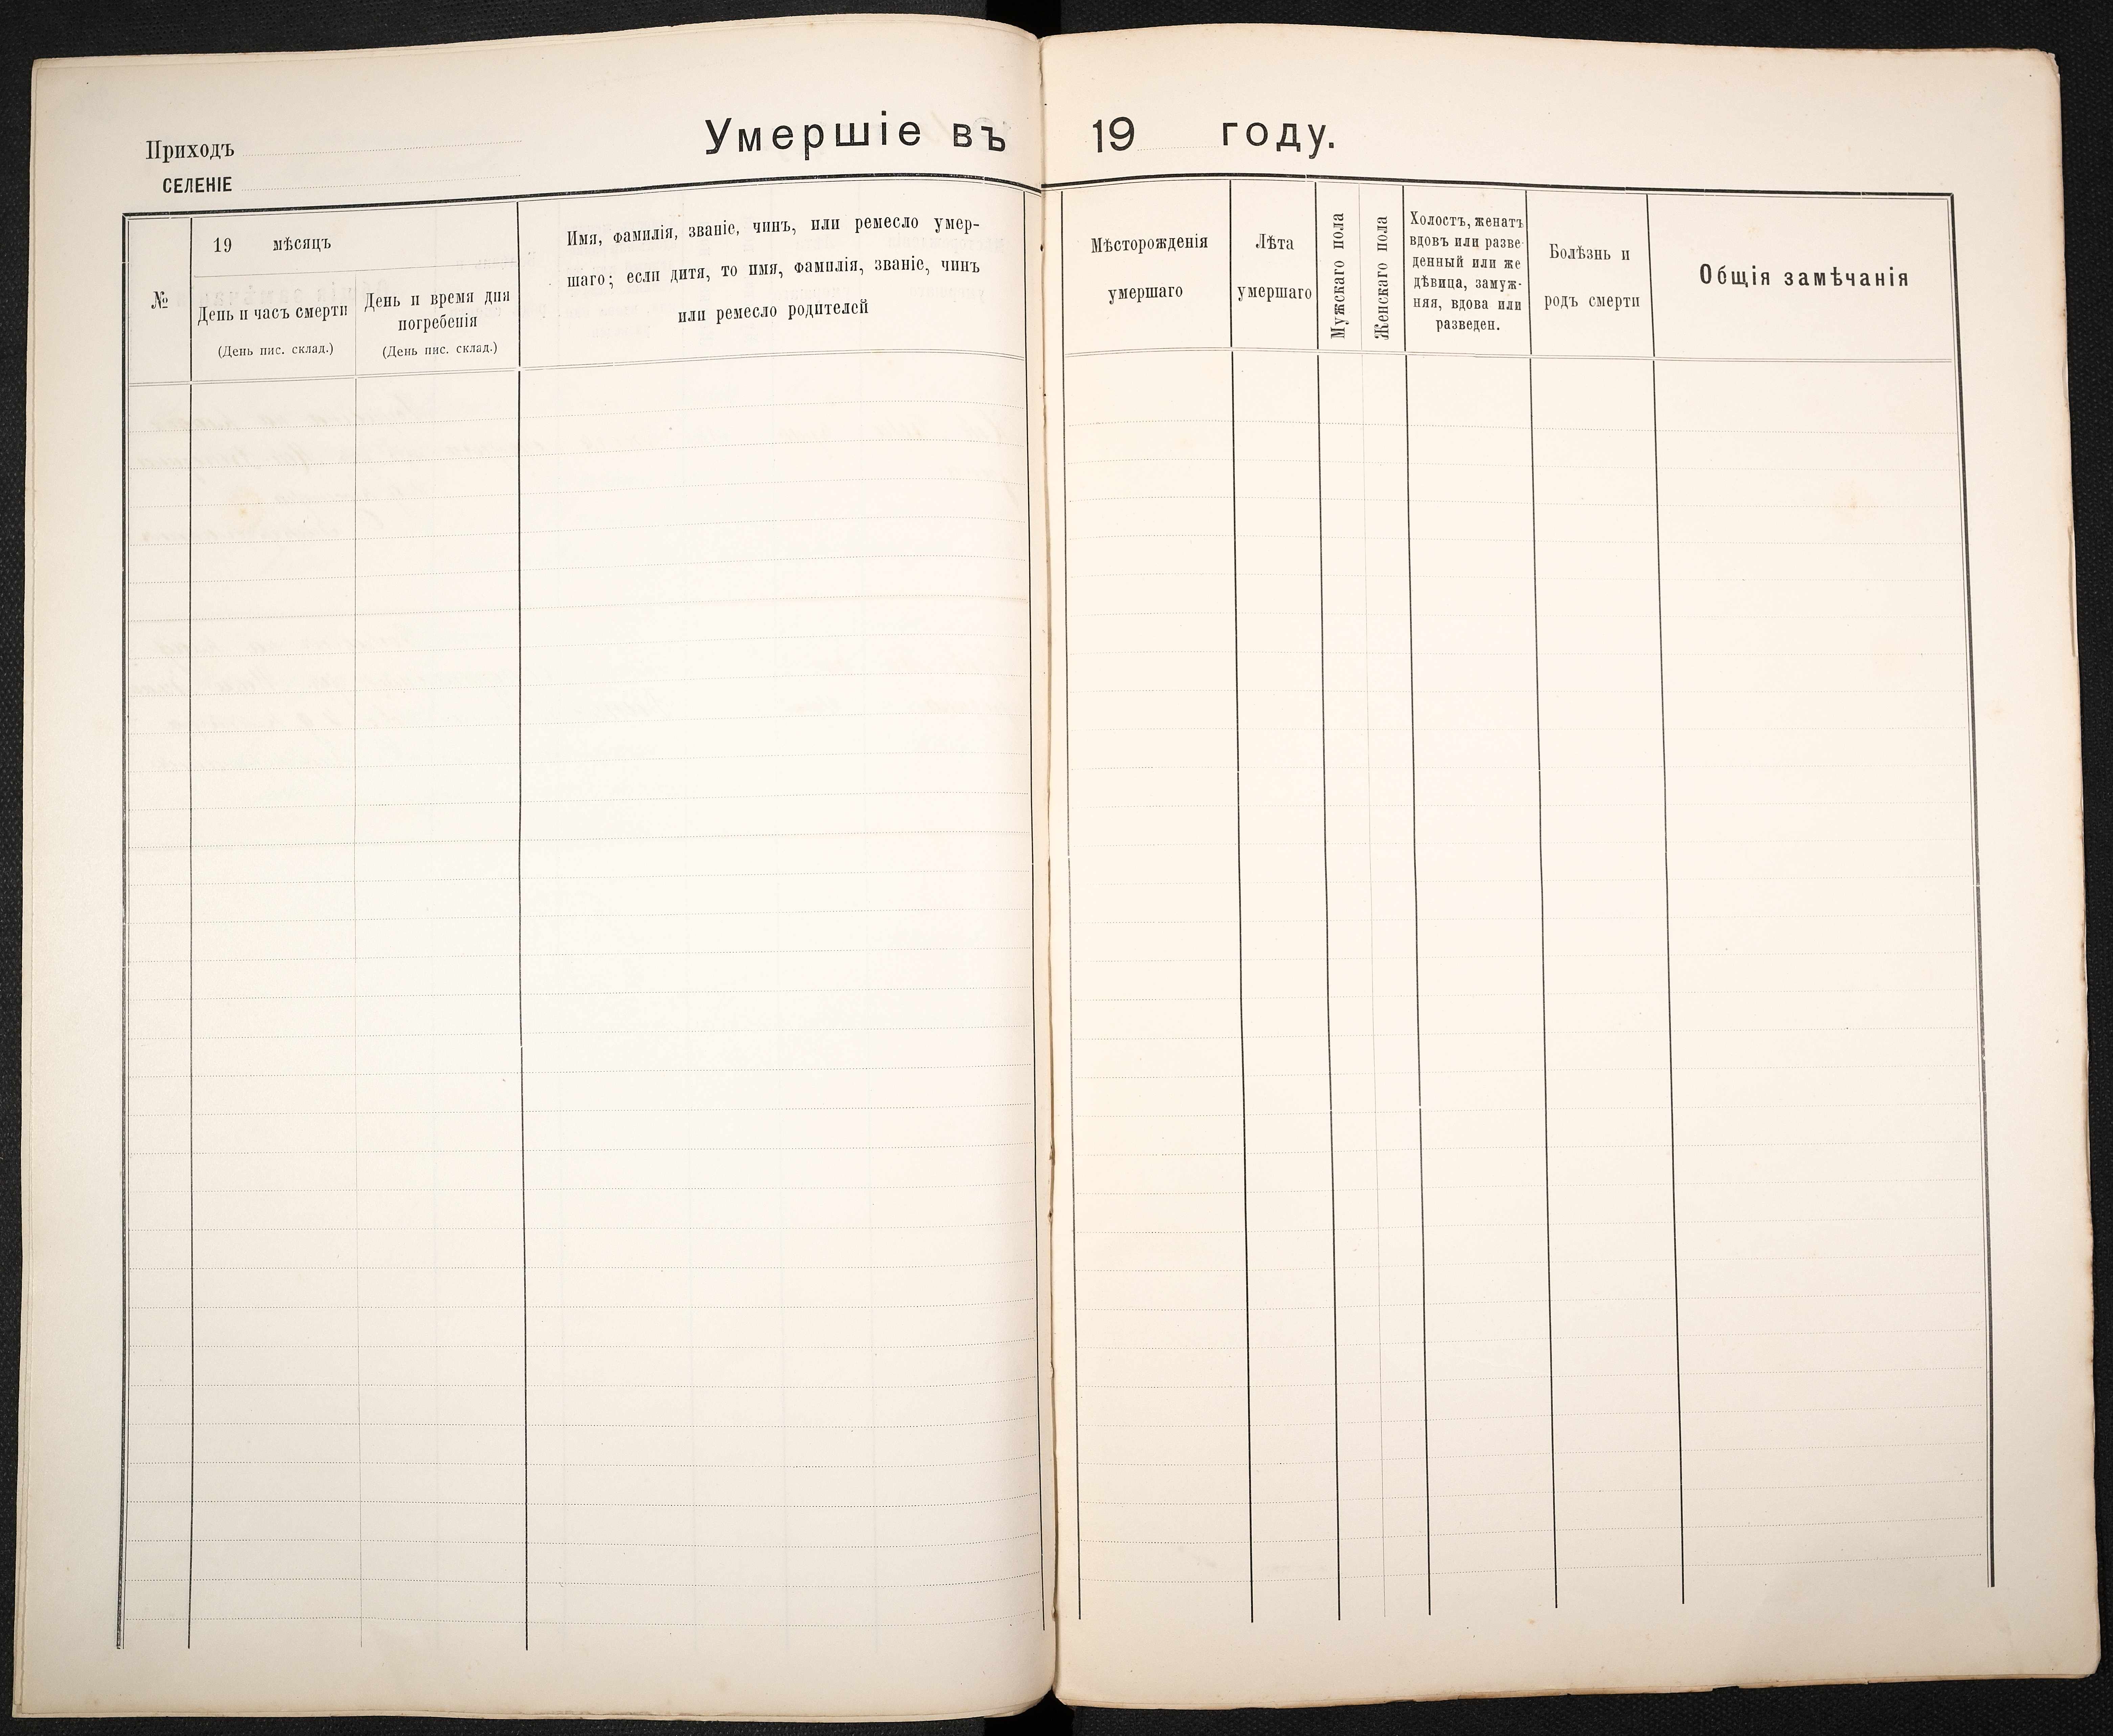 Умершіе въ 19 году.
Приходъ
СЕЛЕНІЕ
№
19 мѣсяцъ
День и часъ смерти
(День пис. склад.)
День и время дня
погребенія
(День пис. склад.)
Имя, фамилія, званіе, чинъ, или ремесло умер-
шаго; если дитя, то имя, фамилія, званіе, чинъ
или ремесло родителей
Мѣсторожденія
умершаго
Лѣта
умершаго
Мужскаго пола
Женскаго пола
Холостъ, женатъ
вдовъ или разве-
денный или же
дѣвица, замуж-
няя, вдова или
разведен.
Болѣзнь и
родъ смерти
Общія замѣчанія